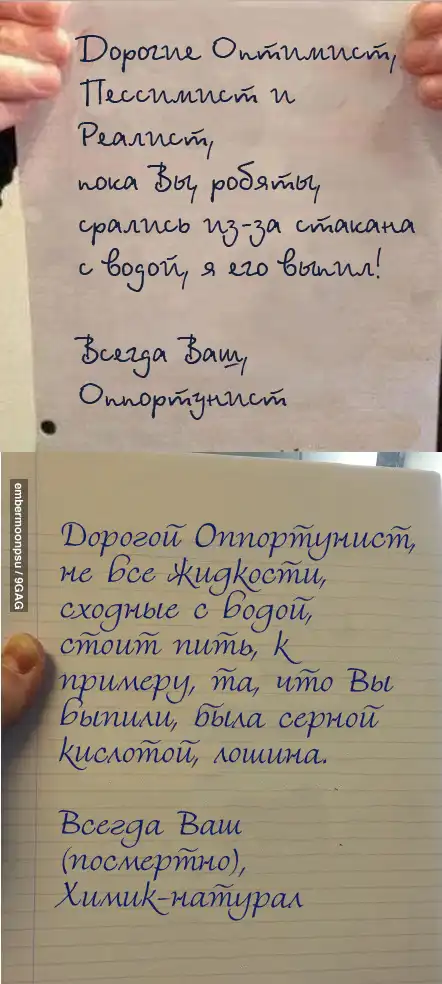 Дорогие Оптимист,
Пессимист и
Реалист,
пока Вы, робяты,
срались из-за стакана
с водой, я его выпил!
Всегда Ваш,
Оппортунист
embermoonpsu / 9GAG
Дорогой Оппортунист,
не все жидкости,
сходные с водой,
стоит пить, к
примеру, та, что Вы
выпили, была серной
кислотой, лошина.
Всегда Ваш
(посмертно),
Химик-натурал